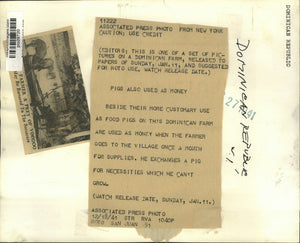 11222
ASSOCIATED PRESS PHOTO FROM NEW YORK
CAUTION: USE CREDIT
(EDITORS: THIS IS ONE OF A SET OF PIC-
TURES ON A DOMINICAN FARM, RELEASED TO
PAPERS OF SUNDAY, JAN.11, AND SUGGESTED
FOR ROTO USE, WATCH RELEASE DATE.)
PIGS ALSO USED AS MONEY
BESIDE THEIR MORE CUSTOMARY USE
AS FOOD PIGS ON THIS DOMINICAN FARM
ARE USED AS MONEY WHEN THE FARMER
GOES TO THE VILLAGE ONCE A MONTH
FOR SUPPLIES. HE EXCHANGES A PIG
FOR NECESSITIES WHICH HE CAN'T
GROW.
(WATCH RELEASE DATE, SUNDAY, JAN.11.)
ASSOCIATED PRESS PHOTO
12/19/41 STR RVA 1040P
SAN JUAN 31
DOMINICAN REPUBLIC
DOMINICAN REPUBLIC